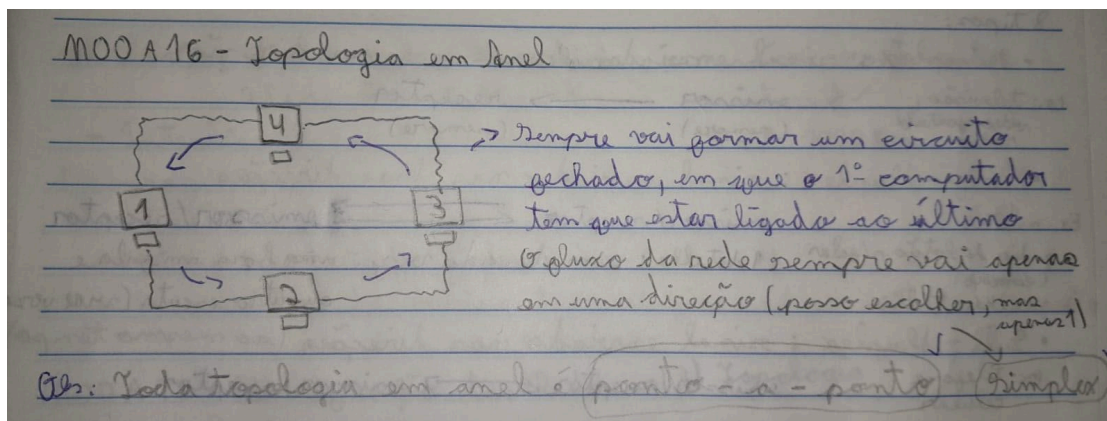 MOO A16 - Topologia em Anel
4
1
3
2
→ Sempre vai formar um circuito
fechado, em que o 1º computador
tem que estar ligado ao último
O fluxo da rede sempre vai apenas
em uma direção (posso escolher, mas
apenas 1)
Obs: Toda topologia em anel é ponto-a-ponto simplex